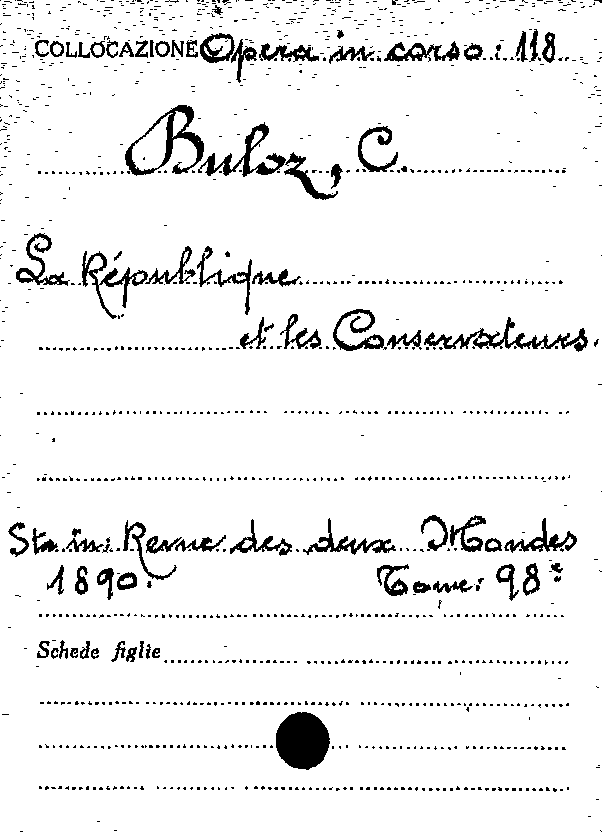 COLLOCAZIONE Opera in corso: 118
Buloz, C.
La République
et les Conservateurs.
Sta in: Revue des deux Mondes
1890. Tome: 98e
Schede figlie